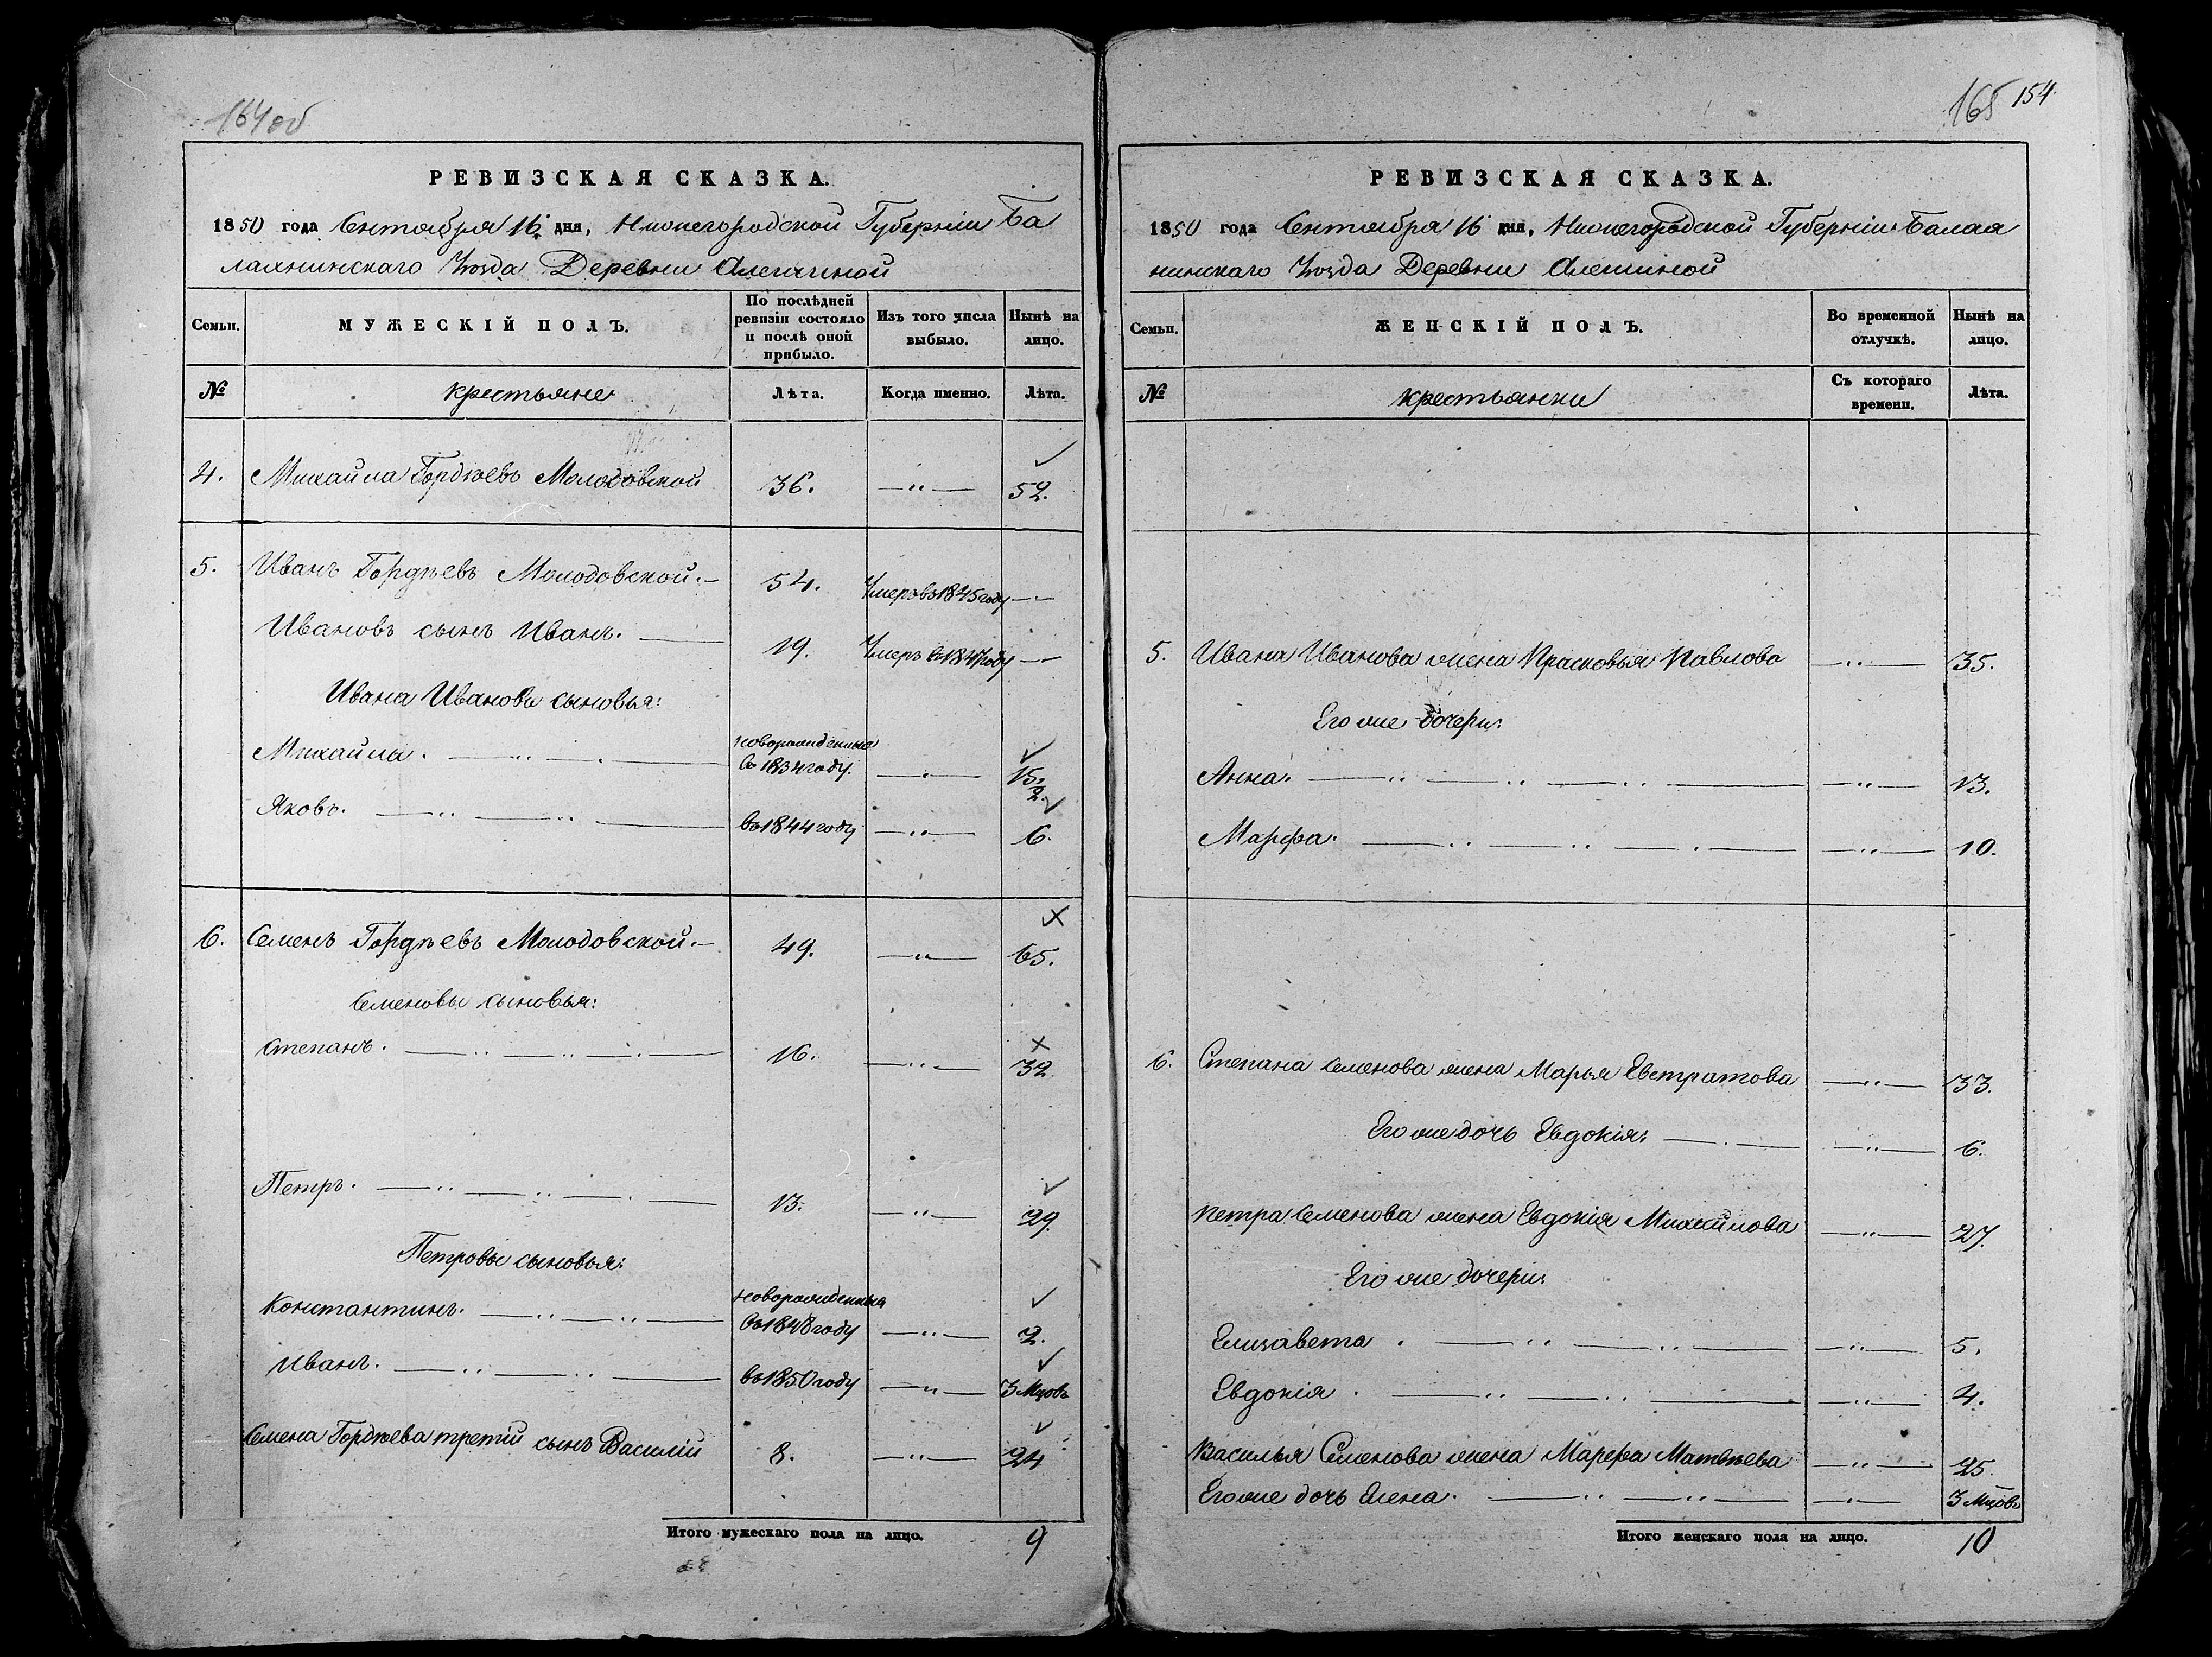 164об
РЕВИЗСКАЯ СКАЗКА.
1850 года Сентября 16 дня, Нижегородской Губерніи Ба
лахнинскаго Уѣзда Деревни Алешиной
Семьи.
МУЖЕСКІЙ ПОЛЪ.
По послѣдней ревизіи состояло и послѣ оной прибыло.
Изъ того числа выбыло.
Нынѣ на лицо.
№ крестьяне Лѣта. Когда именно. Лѣта.
4. Михайла Гордѣевъ Молодовской 36. —"— 52.
5. Иванъ Гордѣевъ Молодовской.— 54. Умеръ въ 1845 году —
Ивановъ сынъ Иванъ. — 19. Умеръ въ 1847 году —
Ивана Иванова сыновья:
Михайла. — новорожденные
въ 1834 году. —"— 15 1/2.
Яковъ. — въ 1844 году —"— 6.
6. Семенъ Гордѣевъ Молодовской.— 49. —"— 65.
Семеновы сыновья:
Степанъ. — 16. —"— 32.
Петръ. — 13. —"— 29.
Петровы сыновья:
Константинъ. — новорожденные
въ 1848 году —"— 2.
Иванъ. — въ 1850 году —"— 3 Мцовъ
Семена Гордѣева третій сынъ Василій 8. —"— 24
Итого мужескаго пола на лицо. 9
165 154.
РЕВИЗСКАЯ СКАЗКА.
1850 года Сентября 16 дня, Нижегородской Губерніи Балах
нинскаго Уѣзда Деревни Алешиной
Семьи.
ЖЕНСКІЙ ПОЛЪ.
Во временной отлучкѣ.
Нынѣ на лицо.
№ крестьянки Съ котораго времени. Лѣта.
5. Ивана Иванова жена Прасковья Павлова —"— 35.
Его же дочери:
Анна. — —"— 13.
Марфа. — —"— 10.
6. Степана Семенова жена Марья Евстратова —"— 33.
Его же дочь Евдокія: — —"— 6.
Петра Семенова жена Евдокія Михайлова —"— 27.
Его же дочери:
Елизавета. — —"— 5.
Евдокія. — —"— 4.
Василья Семенова жена Марфа Матвѣева —"— 25.
Его же дочь Елена. — —"— 3 Мцовъ
Итого женскаго пола на лицо. 10